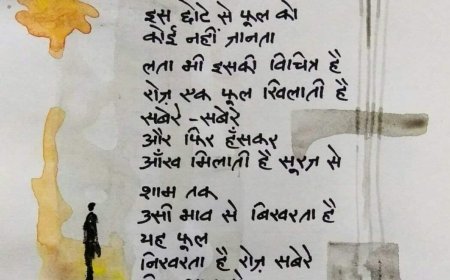 इस छोटे से फूल को
कोई नहीं जानता
लता भी इसकी विचित्र है
रोज़ एक फूल खिलाती है
सबेरे - सबेरे
और फिर हँसकर
आँख मिलाती है सूरज से
शाम तक
उसी भाव से बिखरता है
यह फूल
निखरता है रोज़ सबेरे